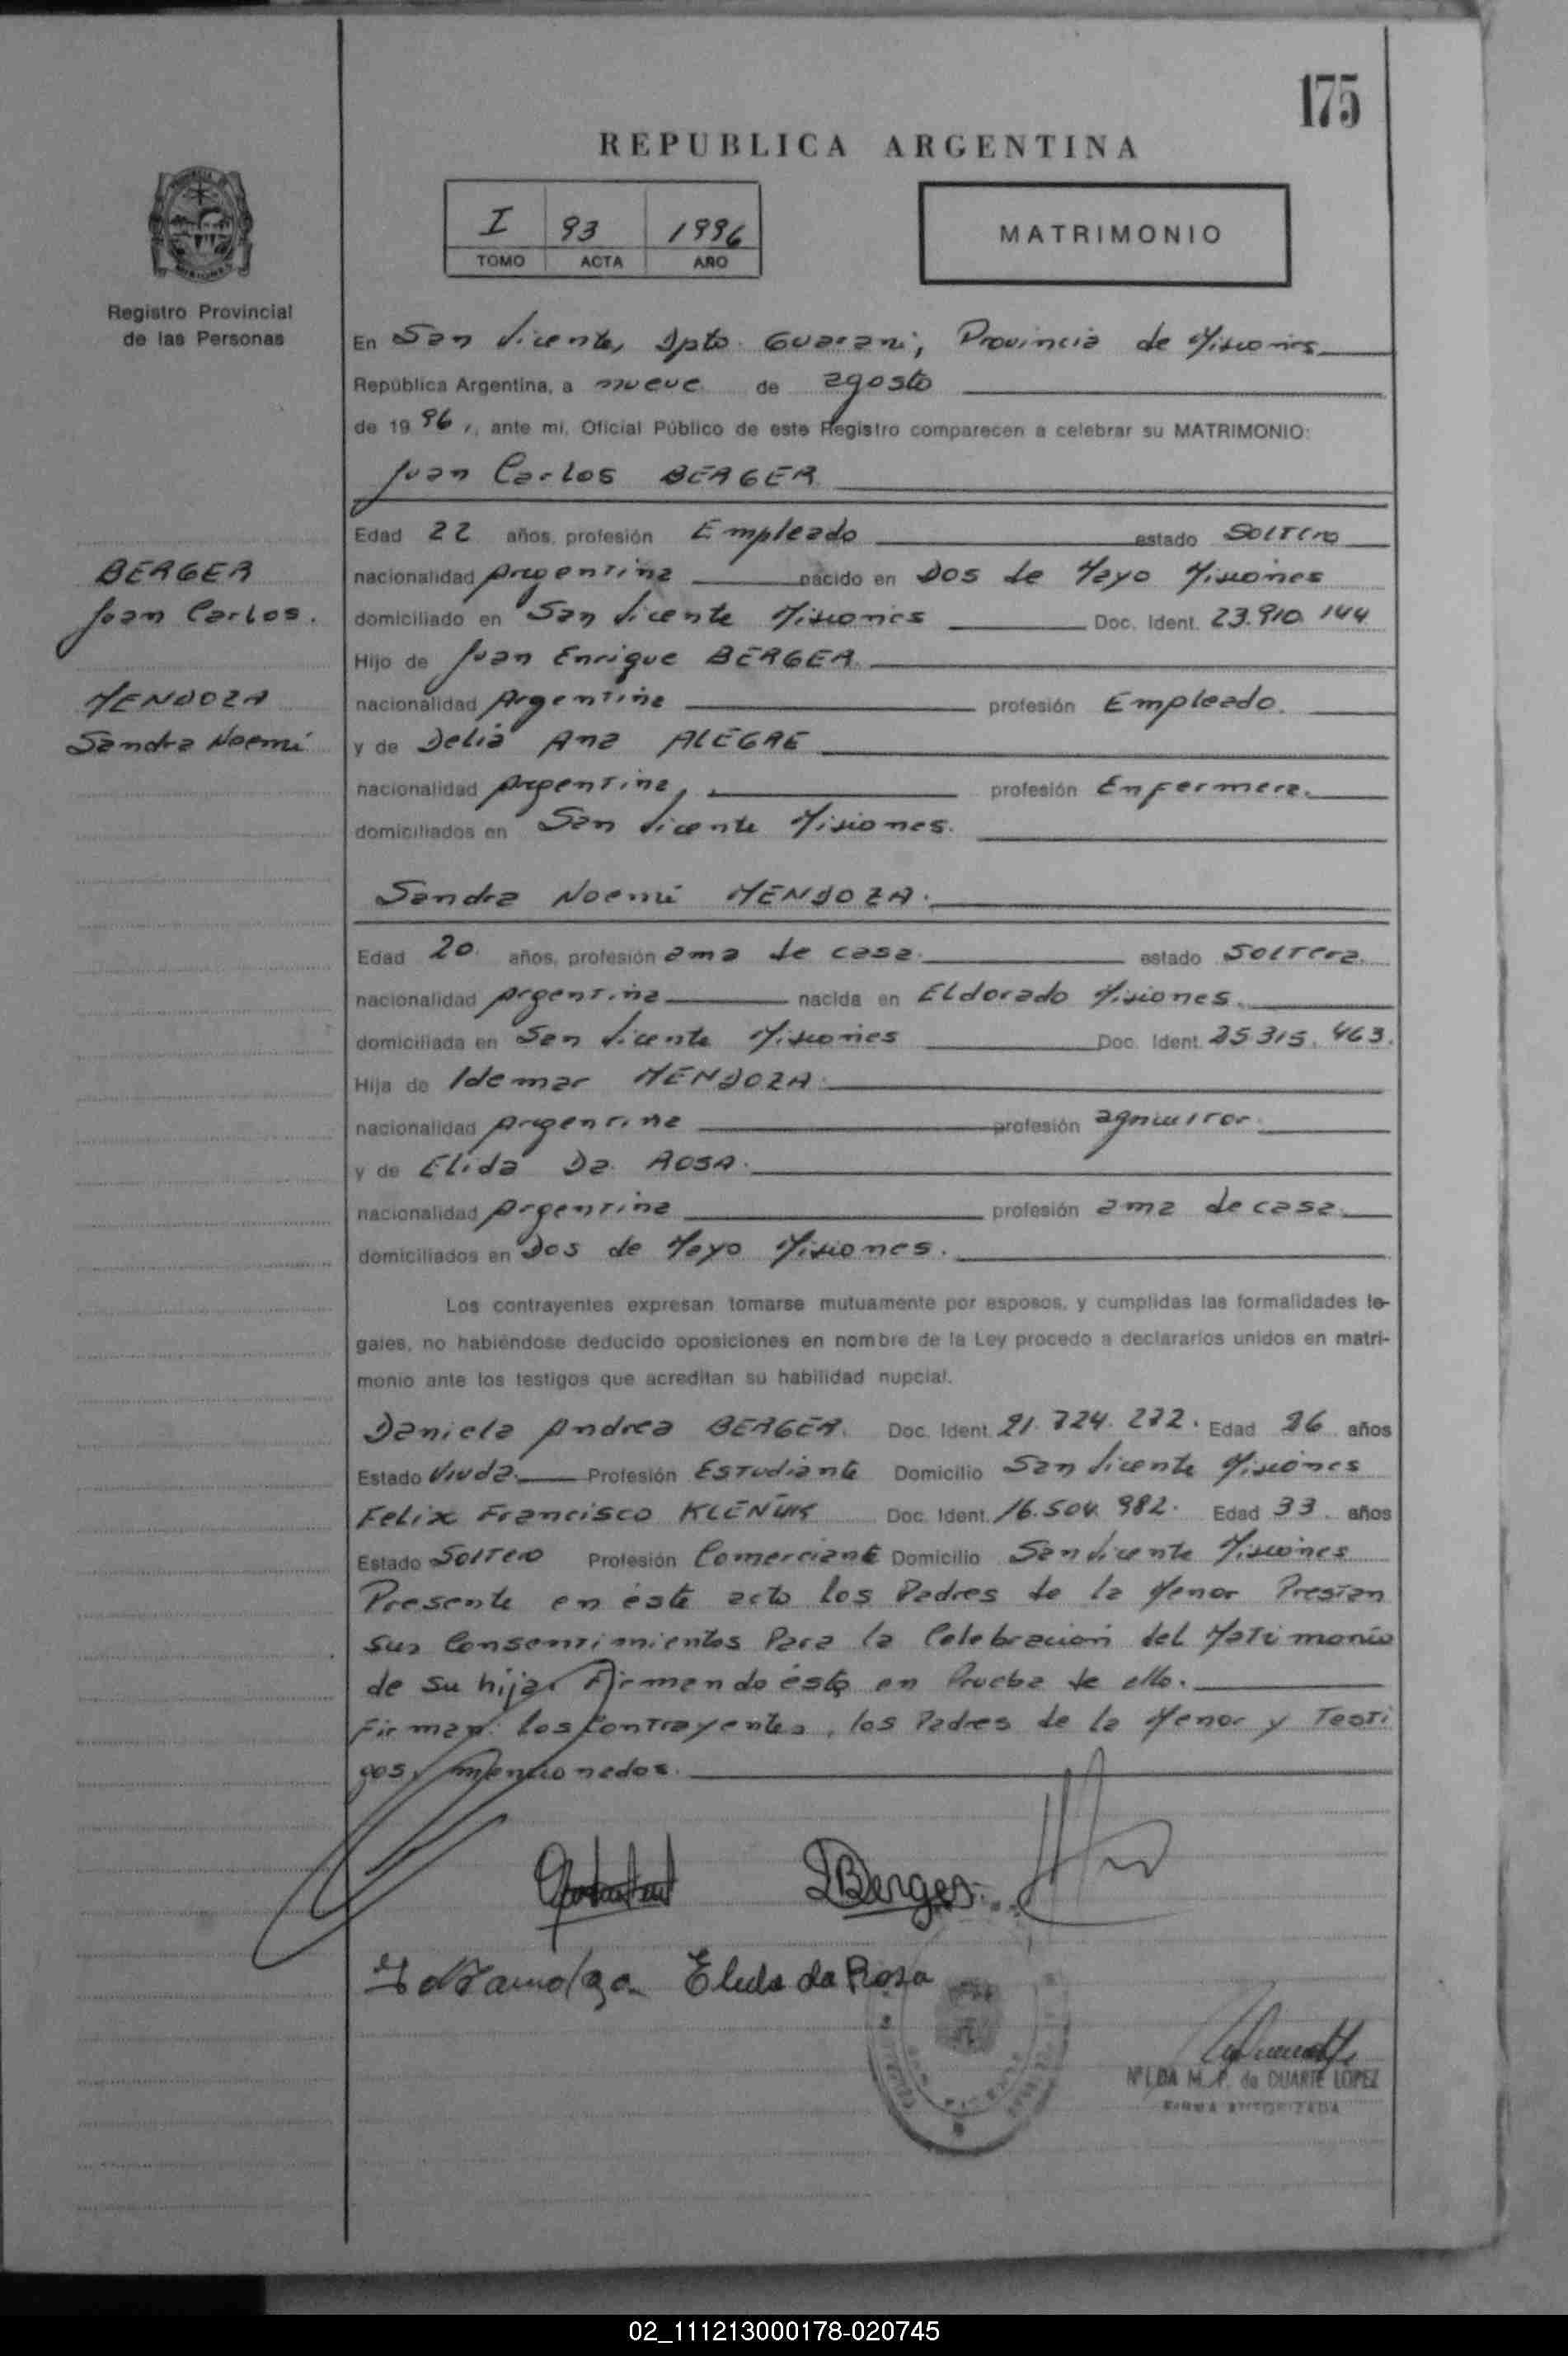 175
REPUBLICA ARGENTINA
I 93 1996
TOMO ACTA AÑO
MATRIMONIO
Registro Provincial
de las Personas
En San Vicente, Dpto. Guaraní, Provincia de Misiones
República Argentina, a nueve de agosto
de 19 96, ante mí, Oficial Público de este Registro comparecen a celebrar su MATRIMONIO:
Juan Carlos BERGER
Edad 22 años, profesión Empleado estado Soltero
BERGER
Juan Carlos.
nacionalidad Argentina nacido en Dos de Mayo Misiones
domiciliado en San Vicente Misiones Doc. Ident. 23.910.144
Hijo de Juan Enrique BERGER.
MENDOZA
Sandra Noemí
nacionalidad Argentina profesión Empleado.
y de Delia Ana ALEGRE
nacionalidad Argentina, profesión Enfermera.
domiciliados en San Vicente Misiones.
Sandra Noemí MENDOZA.
Edad 20. años, profesión ama de casa. estado Soltera.
nacionalidad Argentina nacida en Eldorado Misiones.
domiciliada en San Vicente Misiones Doc. Ident. 25.315.463.
Hija de Idemar MENDOZA.
nacionalidad Argentina profesión agricultor.
y de Elida Da ROSA.
nacionalidad Argentina profesión ama de casa.
domiciliados en Dos de Mayo Misiones.
Los contrayentes expresan tomarse mutuamente por esposos, y cumplidas las formalidades le-
gales, no habiéndose deducido oposiciones en nombre de la Ley procedo a declararlos unidos en matri-
monio ante los testigos que acreditan su habilidad nupcial.
Daniela Andrea BERGER. Doc. Ident. 21.724.272. Edad 26 años
Estado Viuda. Profesión Estudiante Domicilio San Vicente Misiones
Felix Francisco Doc. Ident. 16.504.982. Edad 33. años
Estado Soltero Profesión Comerciante Domicilio San Vicente Misiones
Presente en éste acto los Padres de la Menor Prestan
sus Consentimientos Para la Celebración del Matimonio
de su hija. Firmando ésto en Prueba de ello.
Firman: los Contrayentes, los Padres de la Menor y Testi
gos, mencionados.
DBerger
Elida da Rosa
M. P. de DUARTE LOPEZ
FIRMA AUTORIZADA
02_111213000178-020745